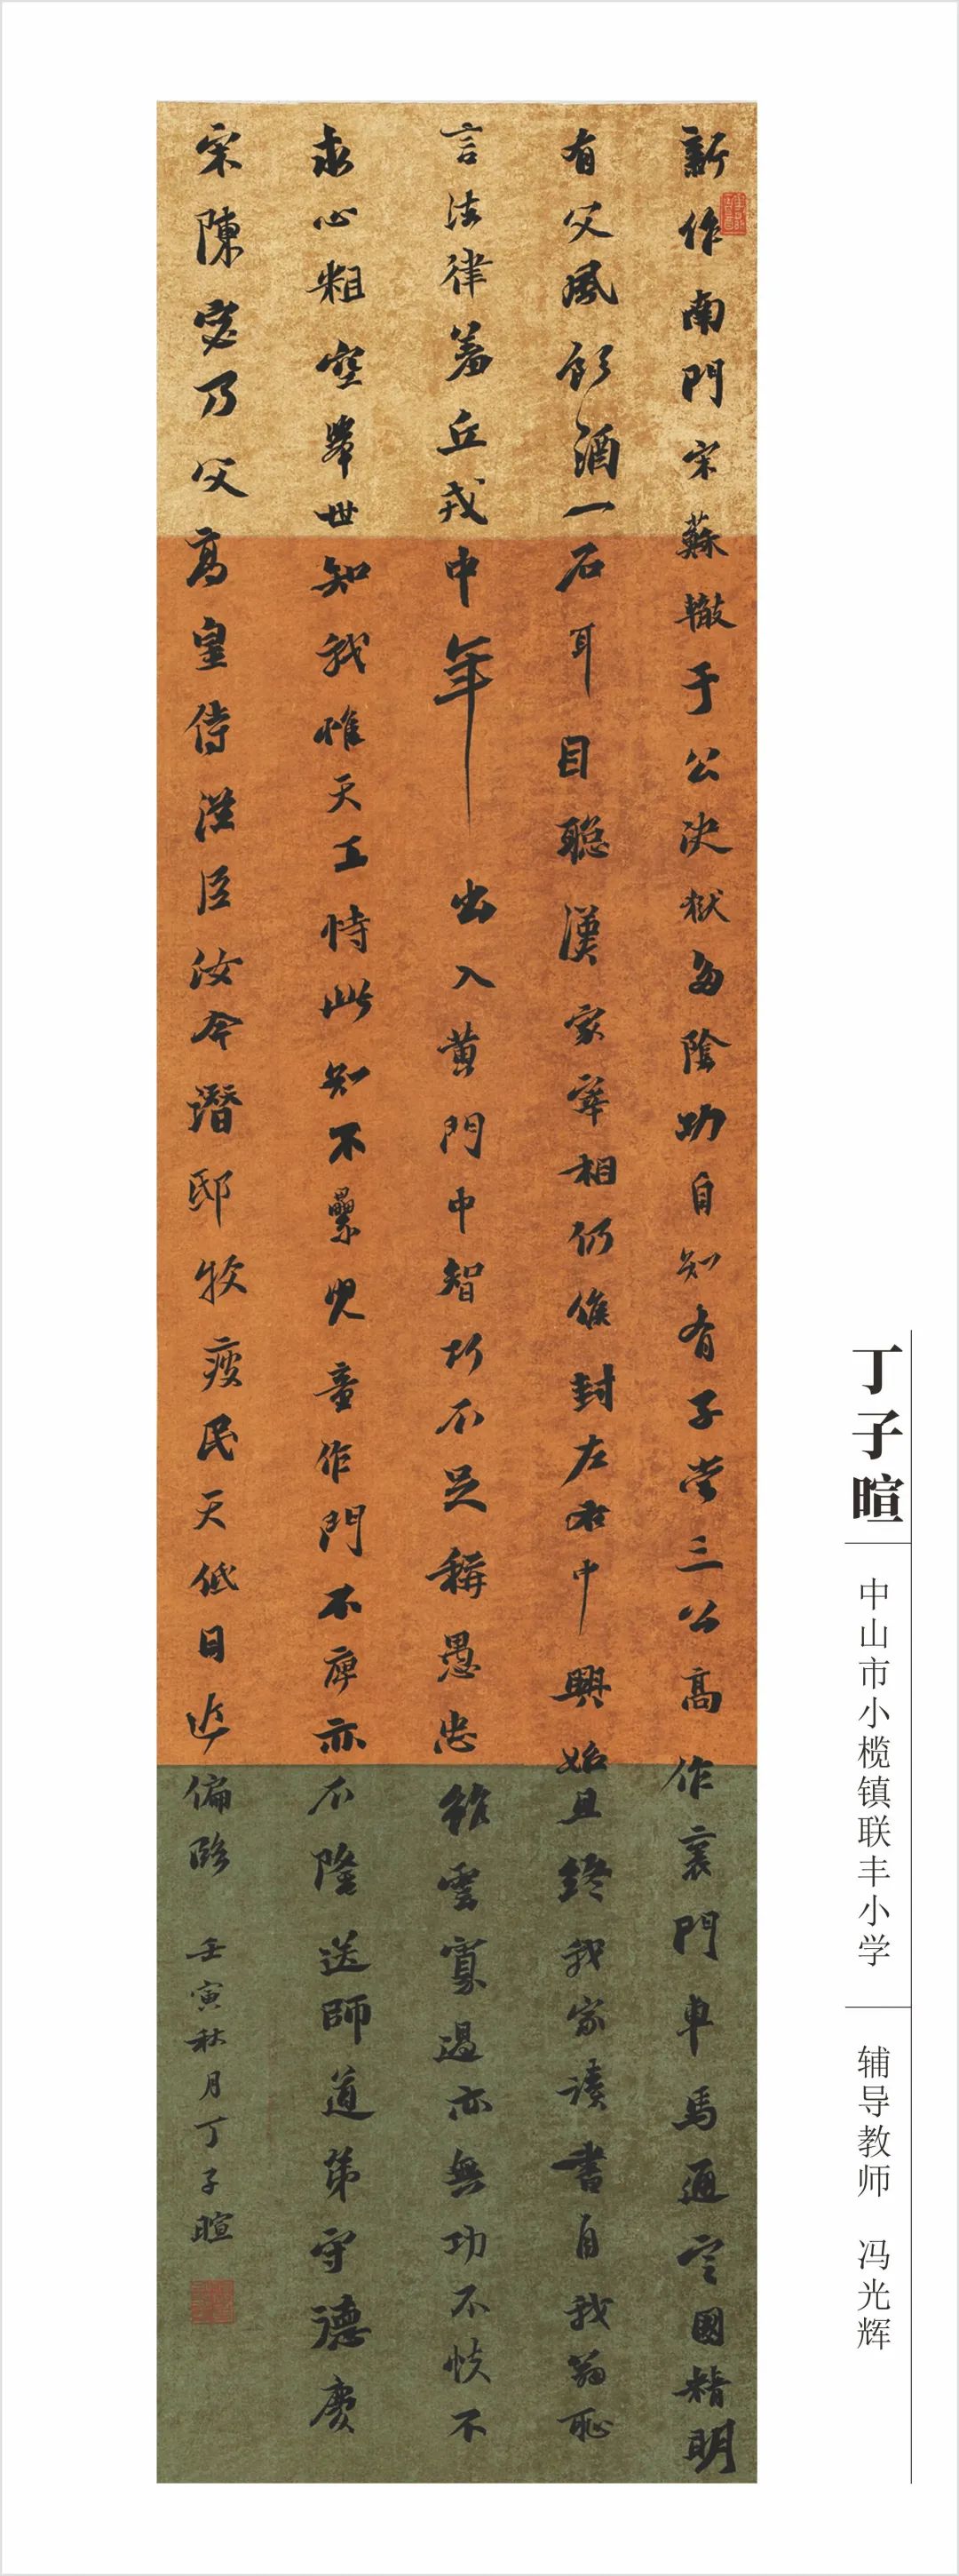 新作南門宋蘇轍于公決獄多陰功自知有子當三公高作裏門車馬通定國精明
有父風飲酒一石耳目聰漢家宰相仍侯封左右中興始且終我家讀書自我翁恥
言法律羞丘戎中年出入黃門中智巧不足稱愚忠雖云寡過亦無功不忮不
求心粗空舉世知我惟天工恃此知不累兒童作門不庳亦不隆送師道弟守德慶
宋陳宓乃父高皇侍從臣汝今潛邸牧疲民天低日近偏臨
壬寅秋月丁子暄
丁子暄
中山市小榄镇联丰小学
辅导教师 冯光辉